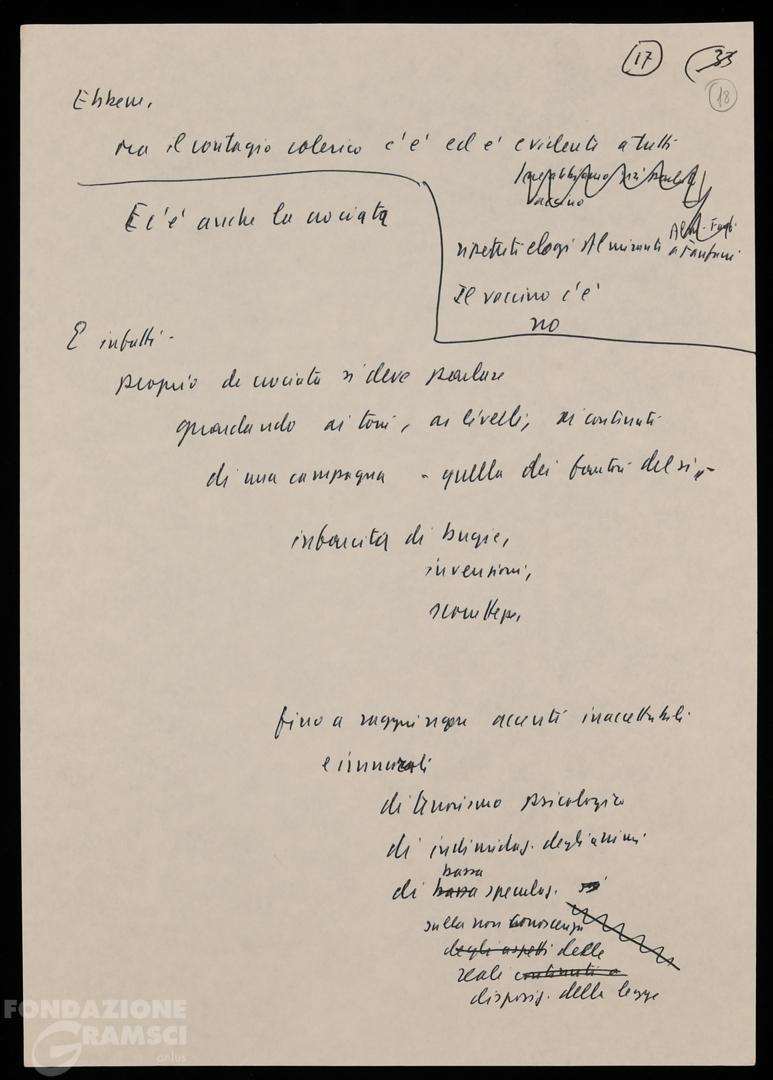 17 33
18
Ebbene,
ma il contagio colerico c'è ed è evidente a tutti
vaccino
E c'è anche la crociata
ripetuti elogi Almirante a Fanfani
Il vaccino c'è
no
E infatti -
proprio di crociata si deve parlare
guardando ai toni, ai livelli, ai contenuti
di una campagna - quella dei fautori del sì -
infarcita di bugie,
invenzioni,
scorrettezze,
fino a raggiungere accenti inaccettabili
e immorali
di terrorismo psicologico
di intimidaz. degli animi
bassa
di bassa speculaz.
sulla non conoscenza
degli aspetti delle
reali contenuti e
disposiz. della legge
FONDAZIONE
GRAMSCI
onlus